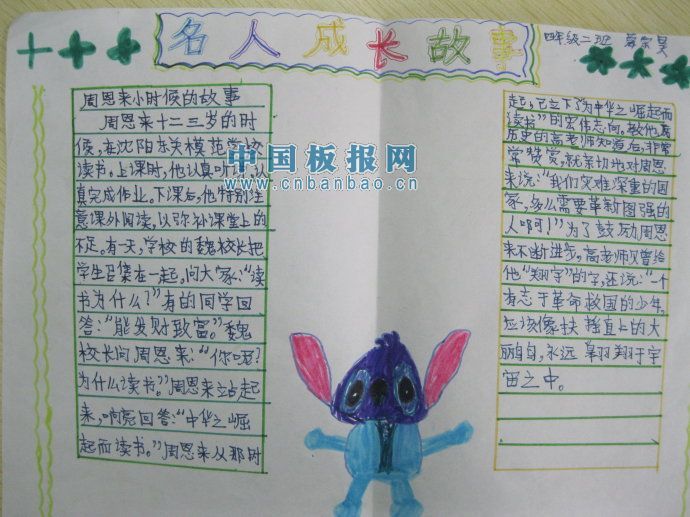 名人成长故事
四年级二班
周恩来小时候的故事
周恩来十二三岁的时
候,在沈阳东关模范学校
读书。上课时,他认真听讲,认
真完成作业。下课后,他特别注
意课外阅读,以弥补课堂上的
不足。有一天,学校的魏校长把
学生召集在一起。问大家:“读
书为什么?”有的同学回
答:“能发财致富。”魏
校长问周恩来:“你呢?
为什么读书。”周恩来站起
来,响亮回答:“中华之崛
起而读书。”周恩来从那时
起,已立下了“为中华之崛起而
读书”的宏伟志向。教他
历史的高老师知道后,非常
常赞赏,就亲切地对周恩
来说:“我们灾难深重的国
家,多么需要革新图强的
人啊!”为了鼓励周恩
来不断进步,高老师又曾给
他“翔宇”的字,还说:“一个
有志于革命救国的少年,
应该像扶摇直上的大
鹏鸟,永远翱翔于宇
宙之中。
中国板报网
www.cnbanbao.cn